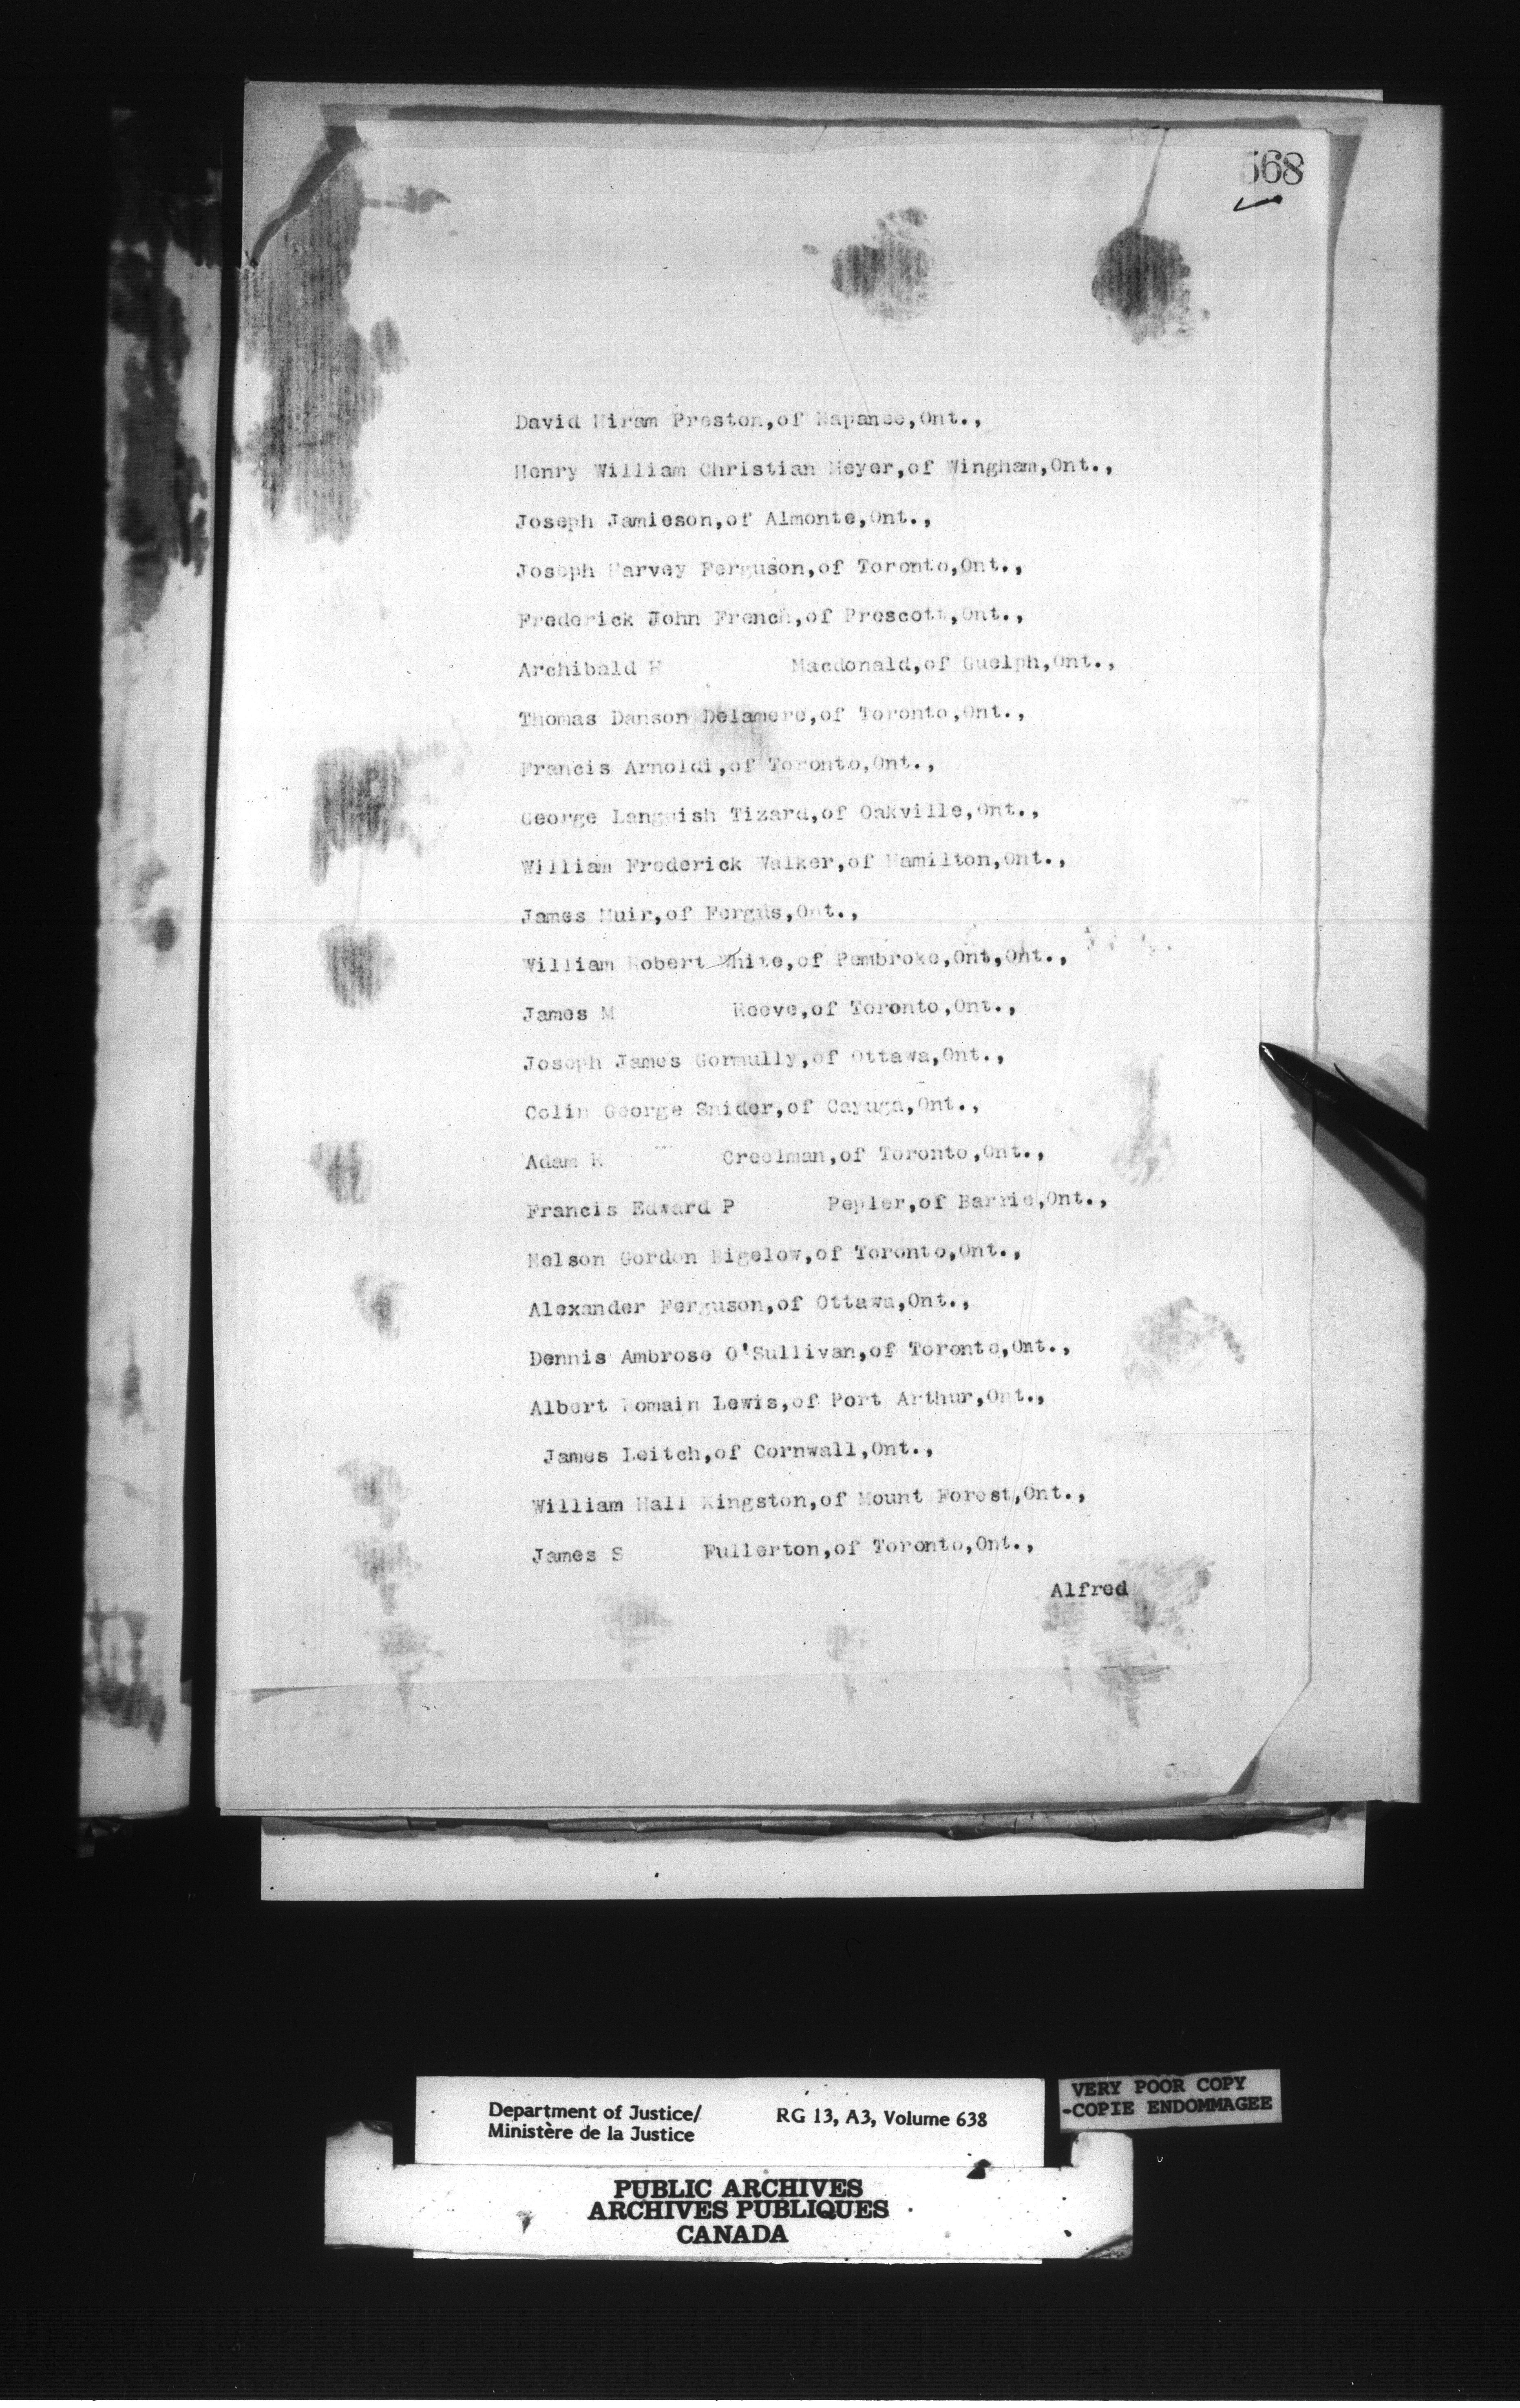 568
David Hiram Preston,of Napanee,Ont.,
Henry William Christian Meyer,of Wingham,Ont.,
Joseph Jamieson,of Almonte,Ont.,
Joseph Harvey Ferguson,of Toronto,Ont.,
Frederick John French,of Prescott,Ont.,
Archibald H Macdonald,of Guelph,Ont.,
Thomas Danson Delamere,of Toronto,Ont.,
Francis Arnoldi,of Toronto,Ont.,
George Languish Tizard,of Oakville,Ont.,
William Frederick Walker,of Hamilton,Ont.,
James Muir,of Fergus,Ont.,
William Robert White,of Pembroke,Ont,Ont.,
James M Reeve,of Toronto,Ont.,
Joseph James Gormully,of Ottawa,Ont.,
Colin George Snider,of Cayuga,Ont.,
Adam R Creelman,of Toronto,Ont.,
Francis Edward P Pepler,of Barrie,Ont.,
Nelson Gordon Bigelow,of Toronto,Ont.,
Alexander Ferguson,of Ottawa,Ont.,
Dennis Ambrose O'Sullivan,of Toronto,Ont.,
Albert Romain Lewis,of Port Arthur,Ont.,
James Leitch,of Cornwall,Ont.,
William Hall Kingston,of Mount Forest,Ont.,
James S Fullerton,of Toronto,Ont.,
Alfred
Department of Justice/ RG 13, A3, Volume 638
Ministère de la Justice
VERY POOR COPY
-COPIE ENDOMMAGEE
PUBLIC ARCHIVES
ARCHIVES PUBLIQUES
CANADA